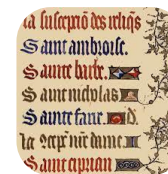 la suscepcion des reliqs
Saint ambroise.
Sainte barbe.
Saint nicholas
Sainte fare.
la concepcion nre dame
Saint ciprian